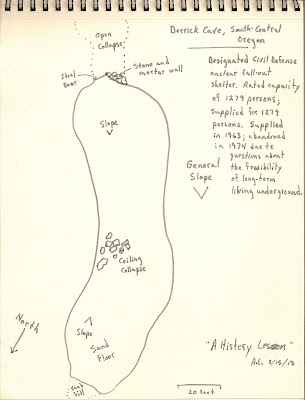 Derrick Cave, South-Central
Oregon
Open
Collapse
Steel
Door
Stone and
mortar wall
Designated Civil Defense
nuclear fallout
shelter. Rated capacity
of 1279 persons,
Supplied for 1279
persons. Supplied
in 1963; abandoned
in 1974 due to
questions about
the feasibility
of long-term
living underground.
Slope
General
Slope
Ceiling
Collapse
North
Slope
Sand
Floor
Sand
Fill
"A History Lesson"
3/15/13
20 feet